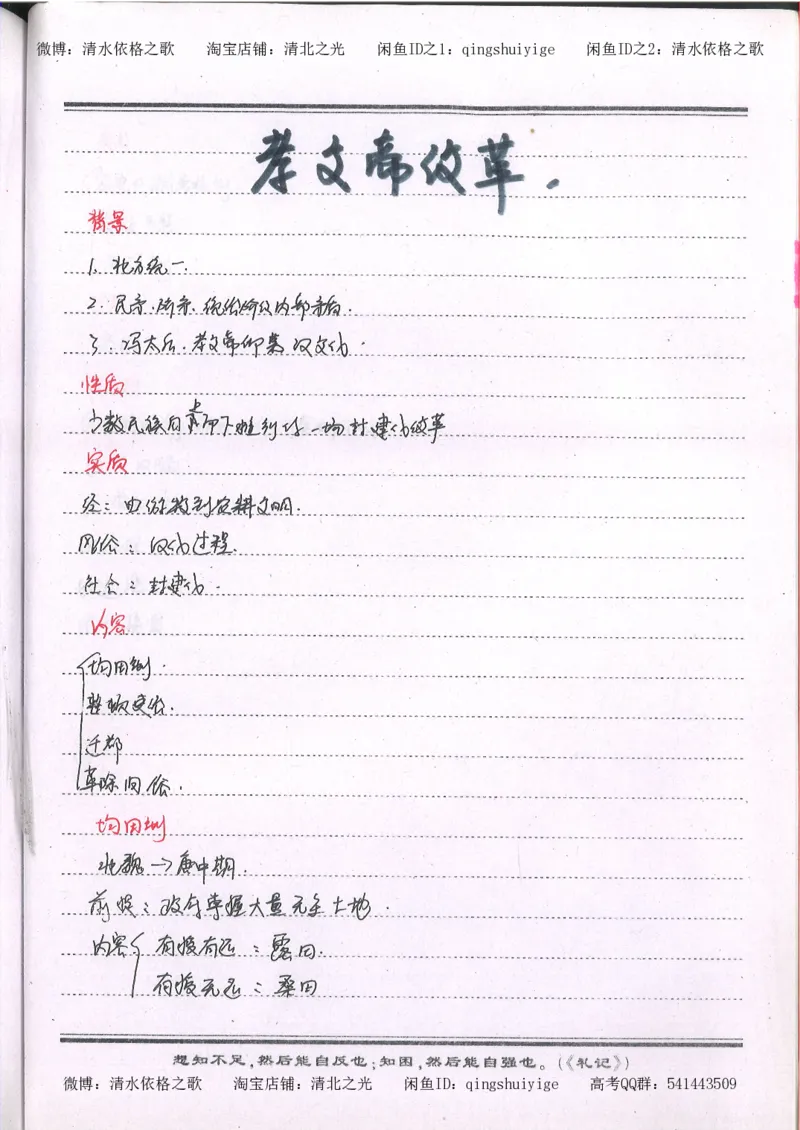 微博：清水依格之歌 淘宝店铺：清北之光 闲鱼ID之1：qingshuiyige 闲鱼ID之2：清水依格之歌
孝文帝改革.
背景
1. 北方统一.
2. 民矛.阶矛.统治阶级内部矛盾.
3. 冯太后.孝文帝仰慕汉文化.
性质
少数民族自上而下进行的一场封建化改革
实质
经：由游牧到农耕文明.
风俗：汉化过程.
社会：封建化.
内容
均田制.
整顿吏治.
迁都
革除旧俗.
均田制
北魏→唐中期.
前提：政府掌握大量无主土地.
内容 有授有还：露田.
有授无还：桑田
知不足,然后能自反也;知困,然后能自强也。(《礼记》)
微博：清水依格之歌 淘宝店铺：清北之光 闲鱼ID：qingshuiyige 高考QQ群：541443509